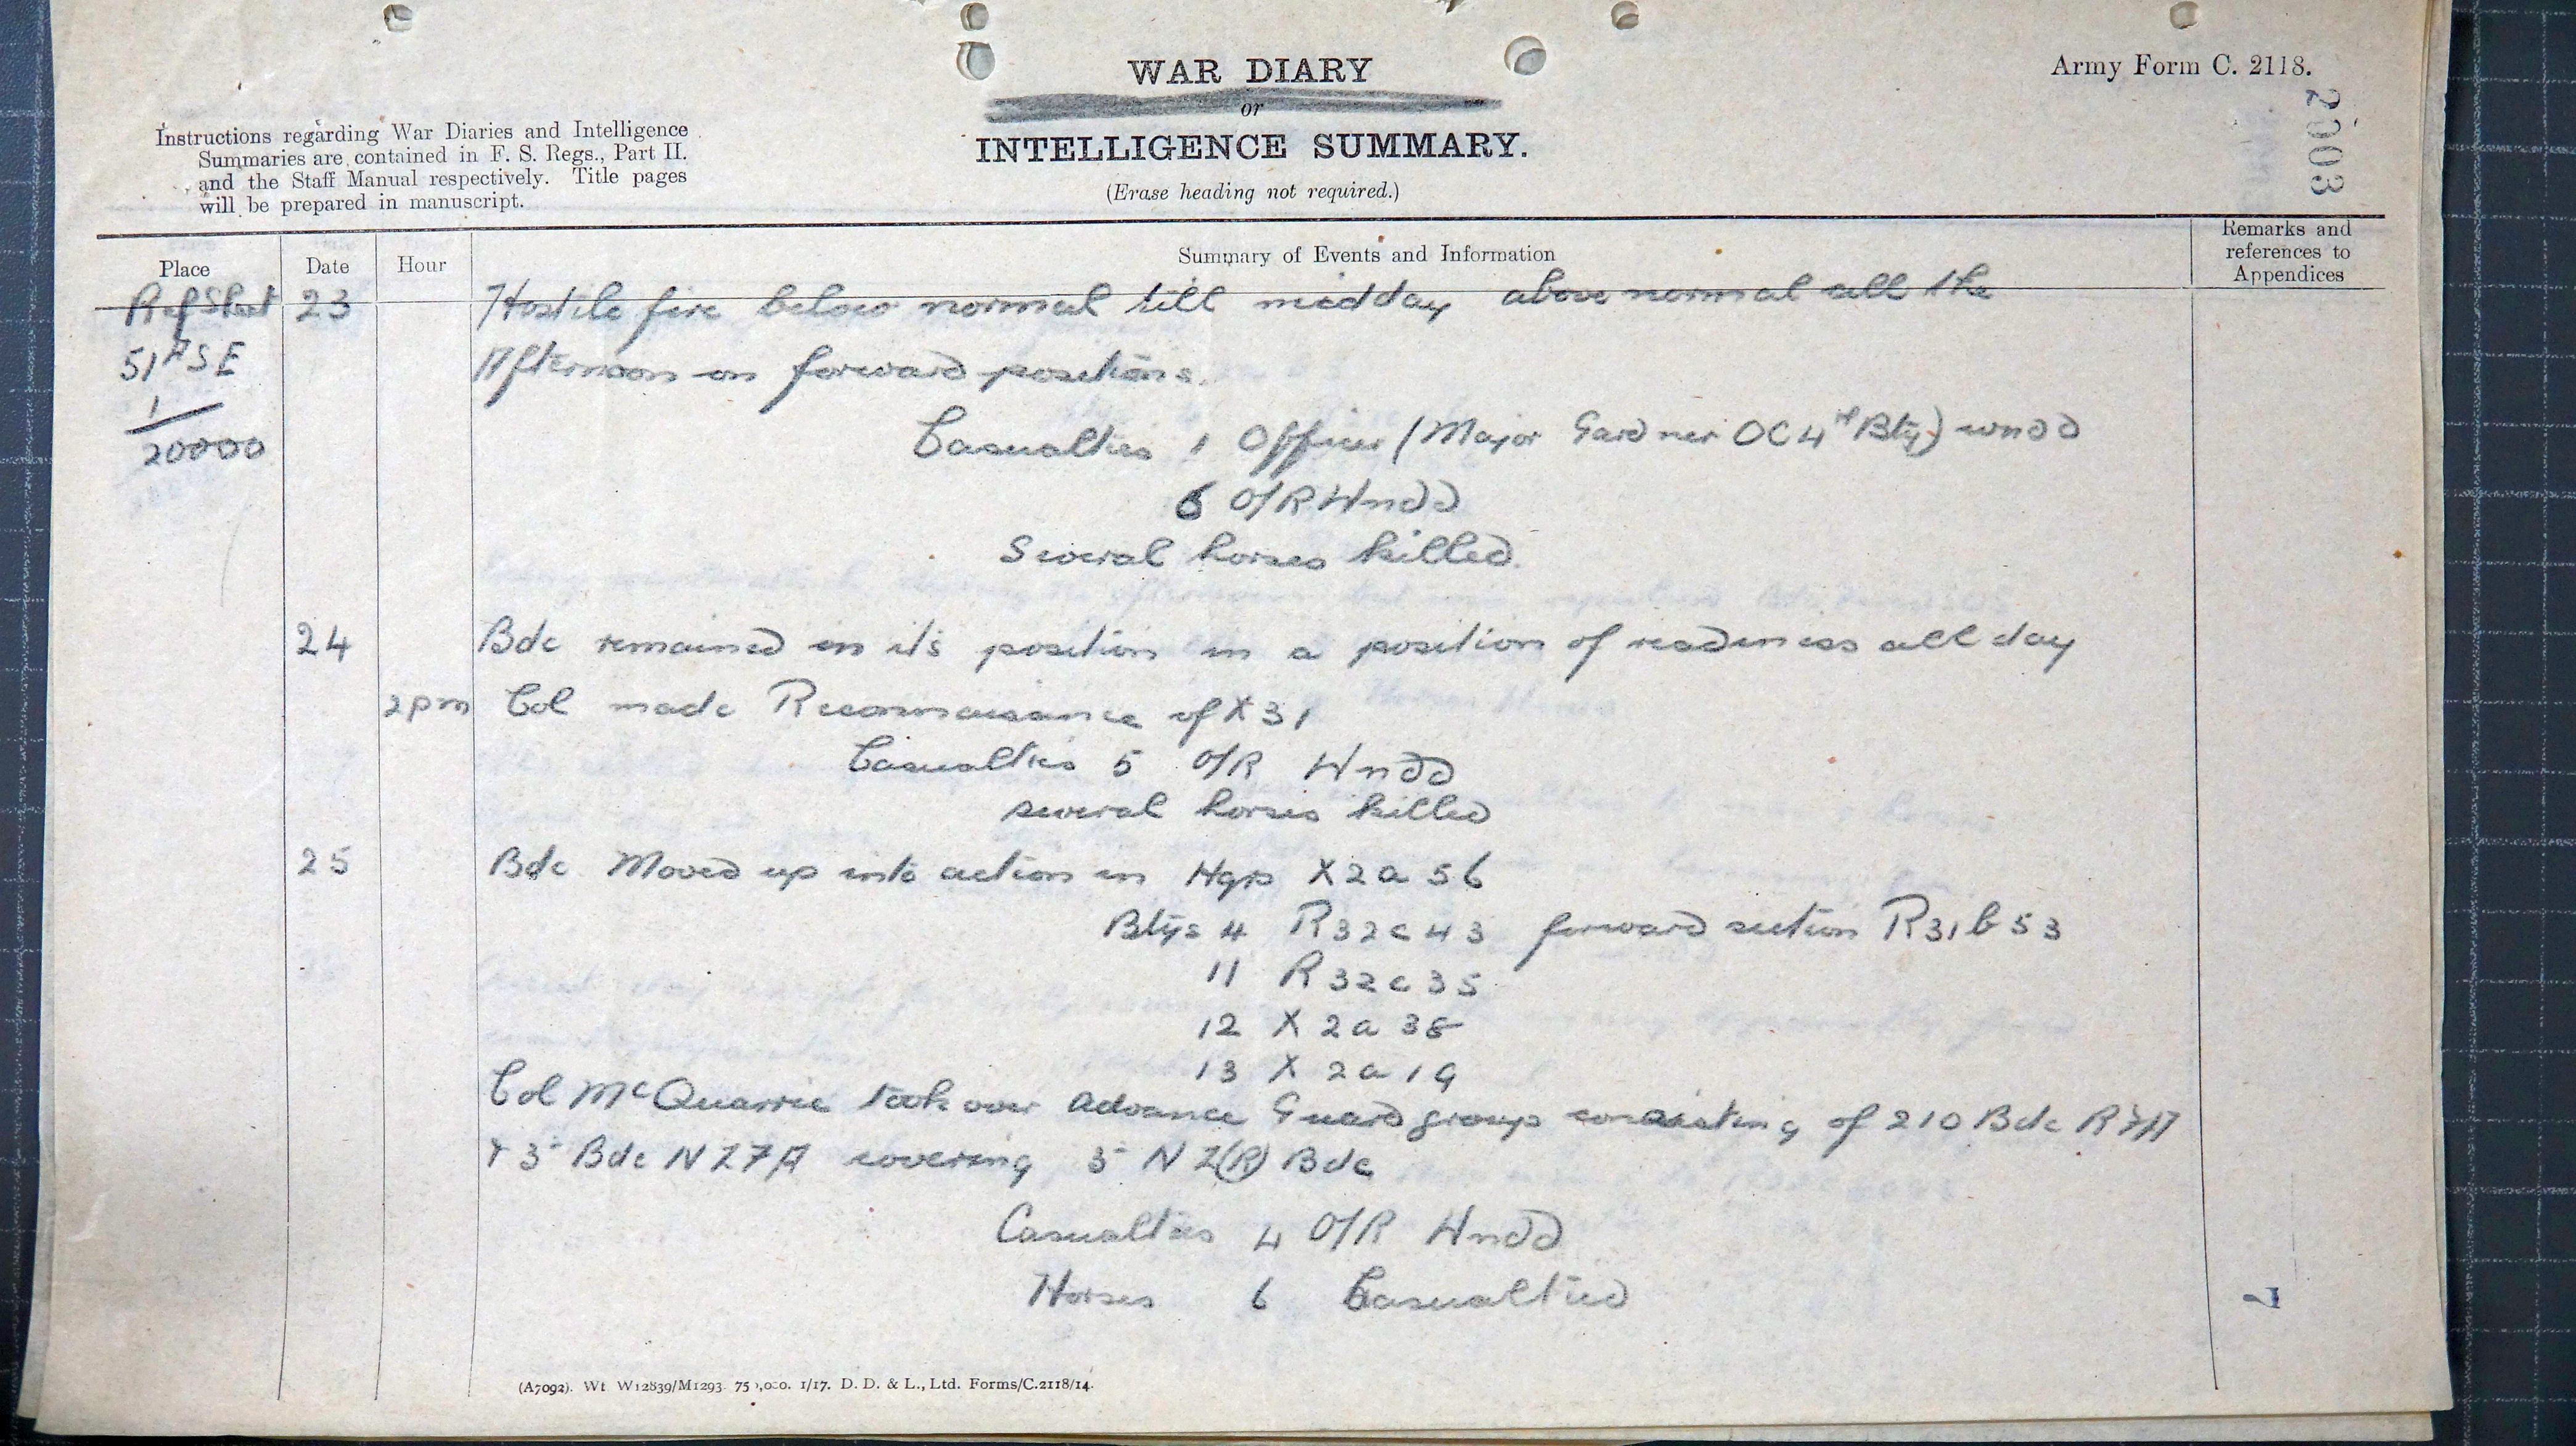 Army Form C. 2118.
2003
WAR DIARY
or
INTELLIGENCE SUMMARY.
(Erase heading not required.)
Instructions regarding War Diaries and Intelligence
Summaries are contained in F. S. Regs., Part II.
and the Staff Manual respectively. Title pages
will be prepared in manuscript.
Place Date Hour Summary of Events and Information Remarks and references to Appendices
Ref Sheet 23 Hostile fire below normal till midday above normal all the
51A SE Afternoon on forward positions.
1/20000
Casualties 1 Officer (Major Gardner OC 4th Bty) wndd
6 O/R Wndd
Several horses killed.
24 Bde remained in its position in a position of readiness all day
2pm Col made Reconnaissance of X31
Casualties 5 O/R Wndd
several horses killed
25 Bde Moved up into action in Hqrs X2a 56
Btys 4 R32c43 forward section R31b53
11 R32c35
12 X 2a 38
13 X 2a 19
Col McQuarrie took over Advance Guard group consisting of 210 Bde RFA
& 3 Bde NZFA covering 3 NZ(R) Bde
Casualties 4 O/R Wndd
Horses 6 Casualtied
7
(A7092). Wt W12839/M1293 750,000. 1/17. D. D. & L., Ltd. Forms/C.2118/14.